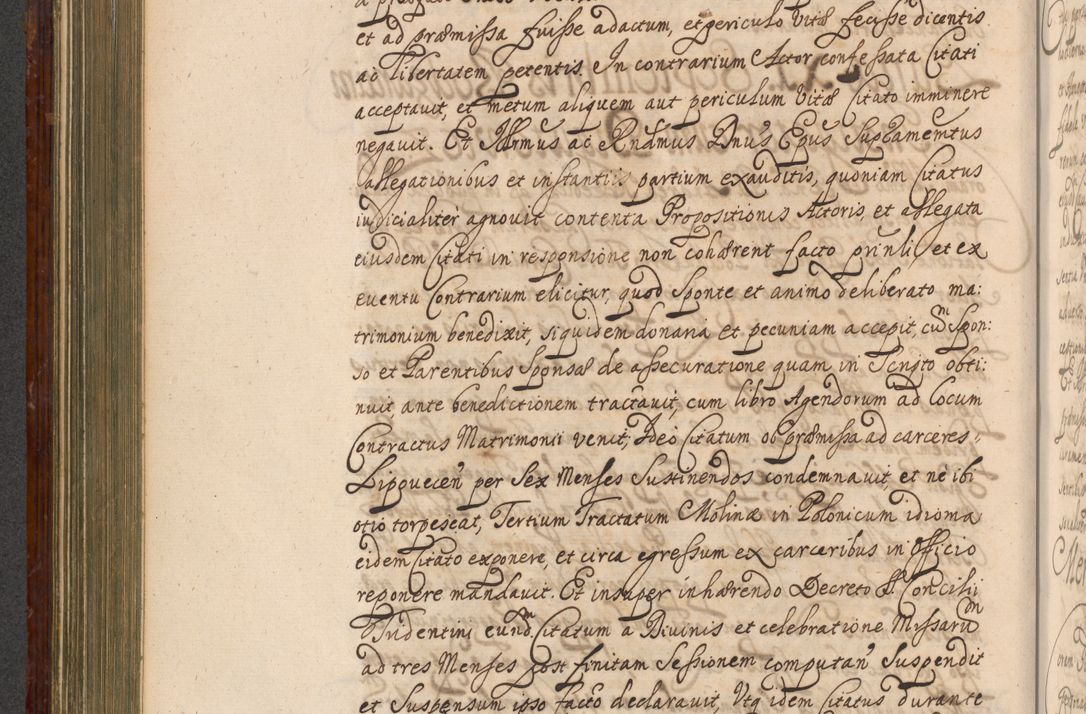 et ad præmissa fuisse adactum, et periculo vitæ fecisse dicentis
ac libertatem petentis. In contrarium Actor confessata Citati
acceptavit, et metum aliquem aut periculum vitæ Citato imminere
negavit. Et Illrmus ac Rndmus Dnus Epus Suptamemtus
allegationibus et instantiis partium exauditis, quoniam Citatus
iudicialiter agnovit contenta Propositionis Actoris, et allegata
eiusdem Citati in responsione non cohærent facto prinli, et ex
eventu Contrarium elicitur, quod sponte et animo deliberato ma:
trimonium benedixit, siquidem donaria et pecuniam accepit, cum Spon:
so et Parentibus Sponsæ de assecuratione quam in Scripto obti:
nuit, ante benedictionem tractavit, cum libro Agendorum ad locum
Contractus Matrimonii venit, Ideo Citatum ob præmissa ad carceres
Lipovecen per Sex Menses Sustinendos condemnavit, et ne ibi
otio torpescat, Tertium Tractatum Molinæ in Polonicum idioma
eidem Citato exponere, et circa egressum ex carceribus in Officio
reponere mandavit. Et insuper inhærendo Decreto S. Concilii
Tridentini eundm Citatum a Divinis et celebratione Missarum
ad tres Menses post finitam Sessionem computan Suspendit
et Suspensum ipso facto declaravit, Utq idem Citatus durante